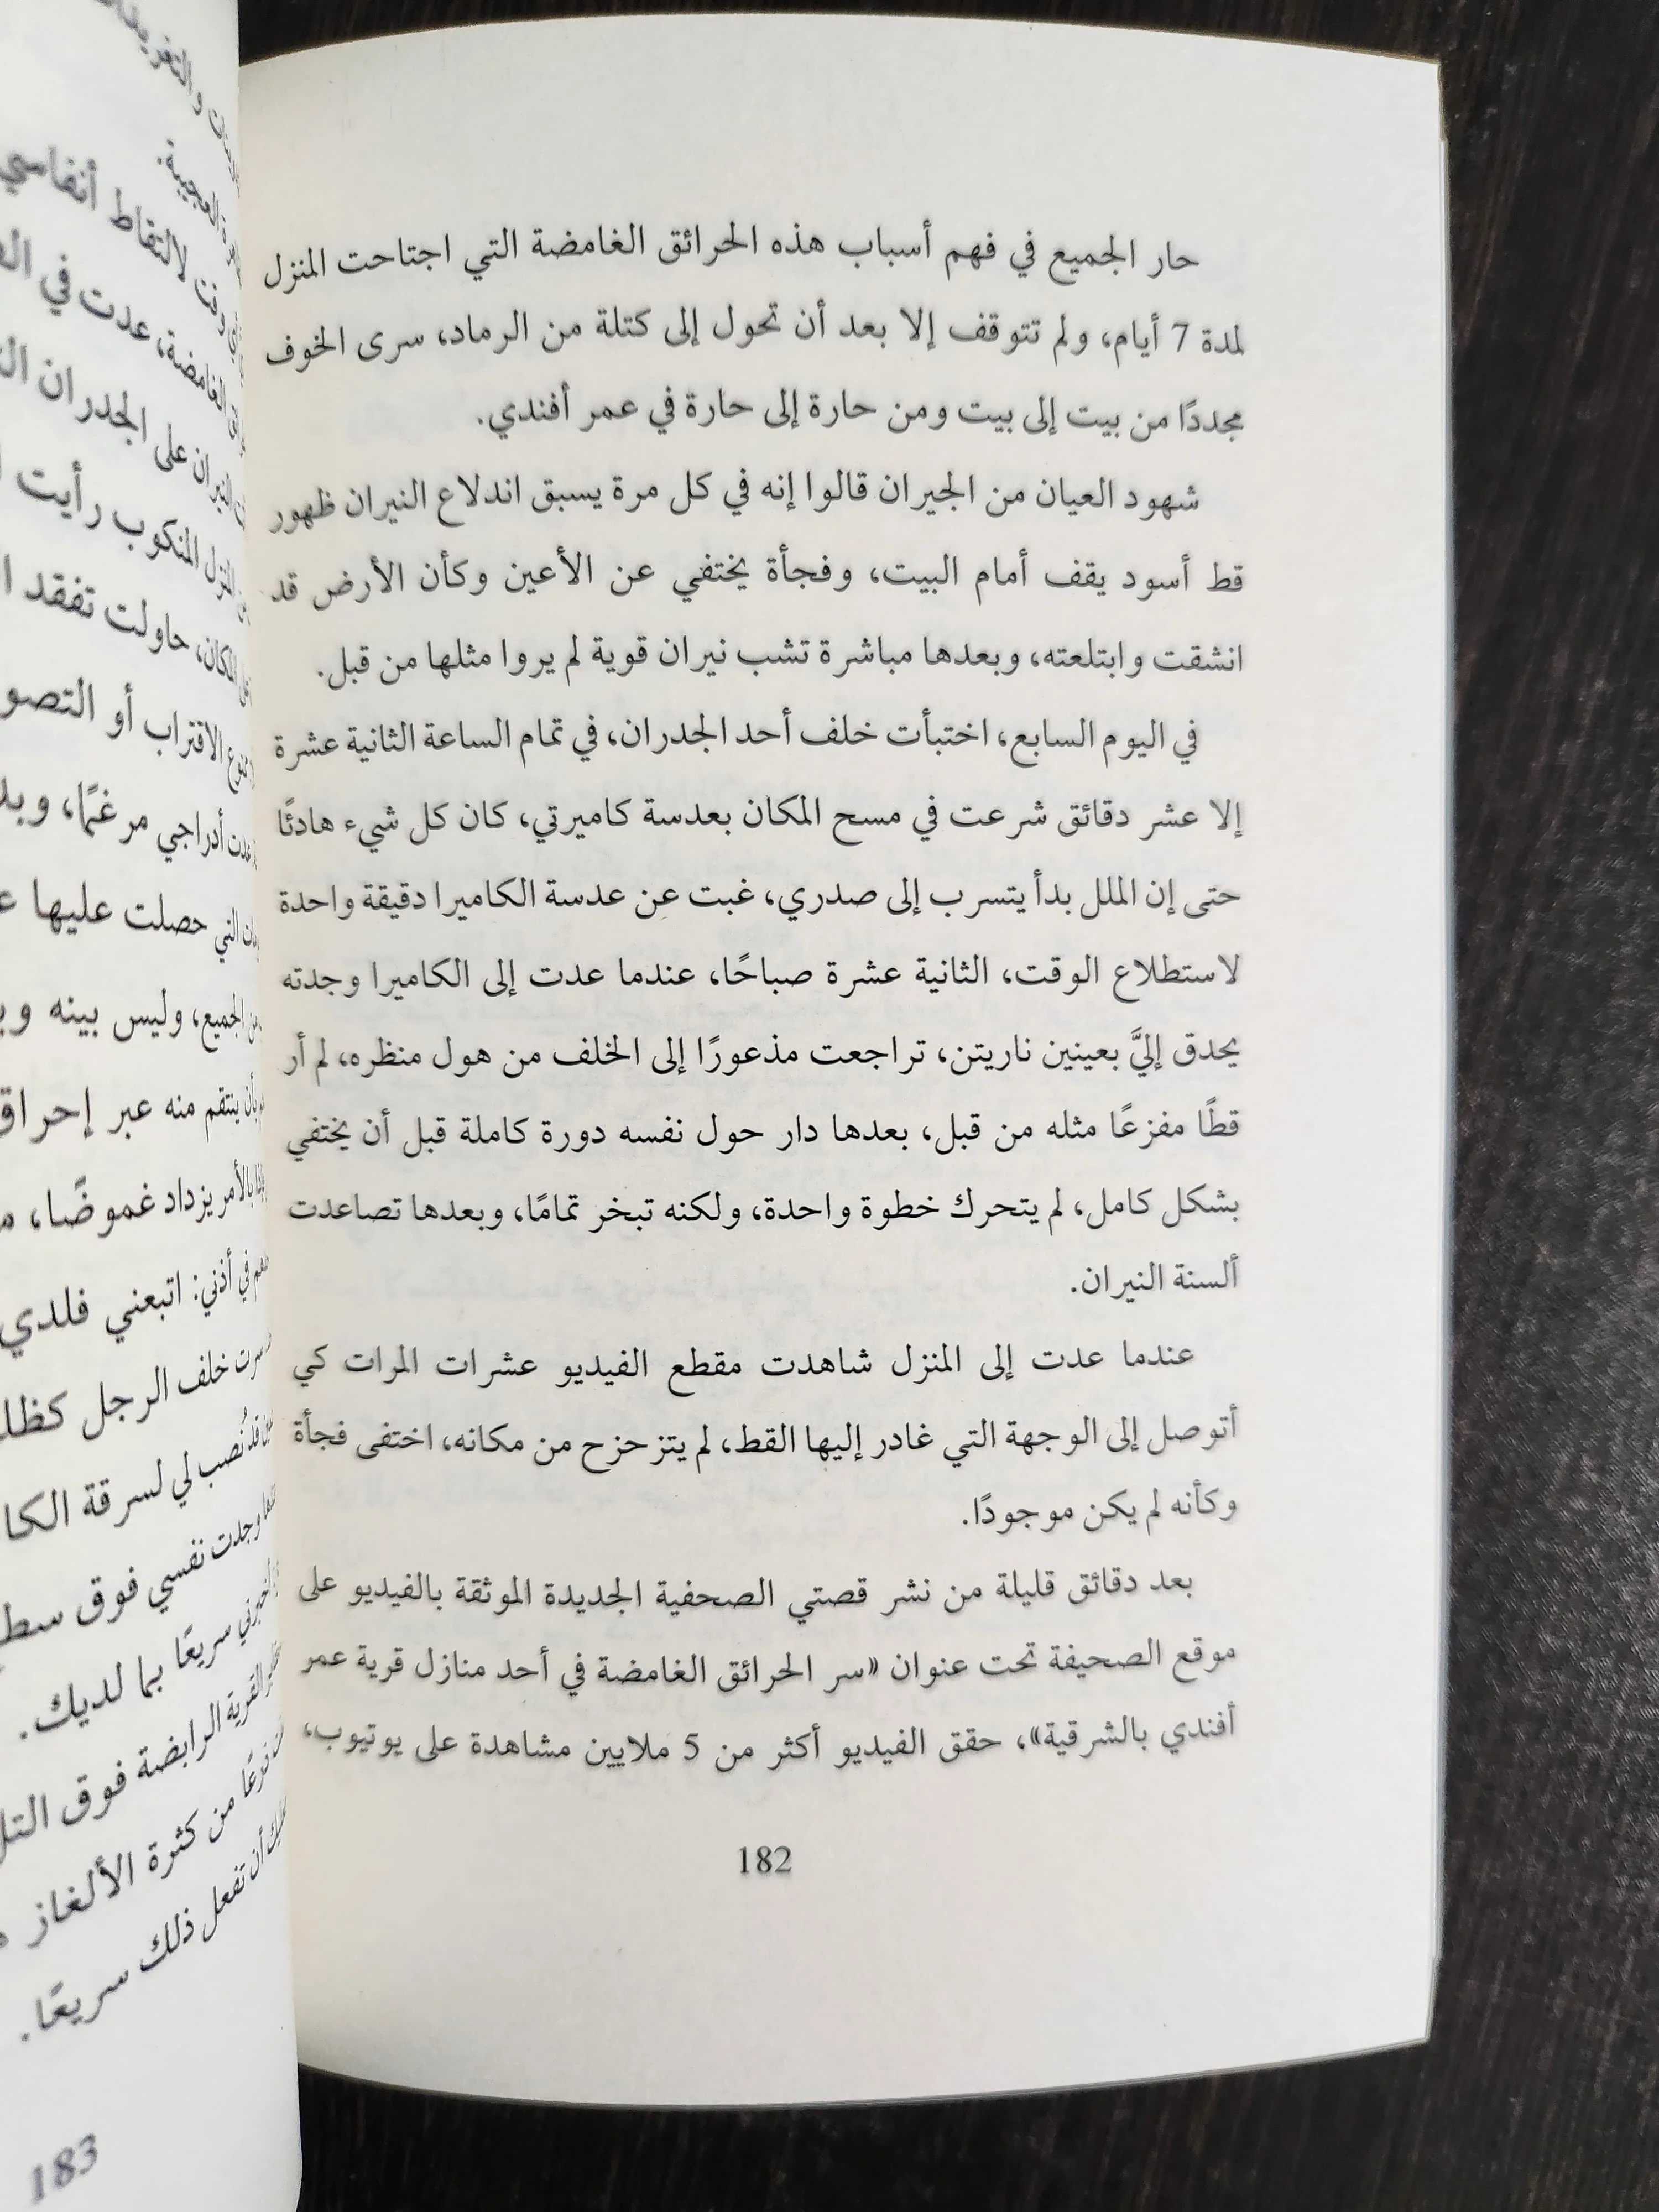 حار الجميع في فهم أسباب هذه الحرائق الغامضة التي اجتاحت المنزل
لمدة 7 أيام، ولم تتوقف إلا بعد أن تحول إلى كتلة من الرماد، سرى الخوف
مجددًا من بيت إلى بيت ومن حارة إلى حارة في عمر أفندي.
شهود العيان من الجيران قالوا إنه في كل مرة يسبق اندلاع النيران ظهور
قط أسود يقف أمام البيت، وفجأة يختفي عن الأعين وكأن الأرض قد
انشقت وابتلعته، وبعدها مباشرة تشب نيران قوية لم يروا مثلها من قبل.
في اليوم السابع، اختبأت خلف أحد الجدران، في تمام الساعة الثانية عشرة
إلا عشر دقائق شرعت في مسح المكان بعدسة كاميرتي، كان كل شيء هادئًا
حتى إن الملل بدأ يتسرب إلى صدري، غبت عن عدسة الكاميرا دقيقة واحدة
لاستطلاع الوقت، الثانية عشرة صباحًا، عندما عدت إلى الكاميرا وجدته
يحدق إليَّ بعينين ناريتن، تراجعت مذعورًا إلى الخلف من هول منظره، لم أر
قطًا مفزعًا مثله من قبل، بعدها دار حول نفسه دورة كاملة قبل أن يختفي
بشكل كامل، لم يتحرك خطوة واحدة، ولكنه تبخر تمامًا، وبعدها تصاعدت
ألسنة النيران.
عندما عدت إلى المنزل شاهدت مقطع الفيديو عشرات المرات كي
أتوصل إلى الوجهة التي غادر إليها القط، لم يتزحزح من مكانه، اختفى فجأة
وكأنه لم يكن موجودًا.
بعد دقائق قليلة من نشر قصتي الصحفية الجديدة الموثقة بالفيديو على
موقع الصحيفة تحت عنوان «سر الحرائق الغامضة في أحد منازل قرية عمر
أفندي بالشرقية»، حقق الفيديو أكثر من 5 ملايين مشاهدة على يوتيوب،
182
لالتقاط أنفاسي
الغامضة، عدت في
النيران على الجدران
المنزل المنكوب رأيت
المكان، حاولت تفقد
الاقتراب أو
أدراجي مرغمًا،
التي حصلت عليها
الجميع، وليس بينه
بأن ينتقم منه عبر إحراق
بالأمر يزداد غموضًا،
في أذني: اتبعني فلدي
سرت خلف الرجل
قد نُصب لي لسرقة
وجدت نفسي فوق
سريعًا بما لديك.
القرية الرابضة فوق
من كثرة الألغاز
أن تفعل ذلك سريعًا.
183